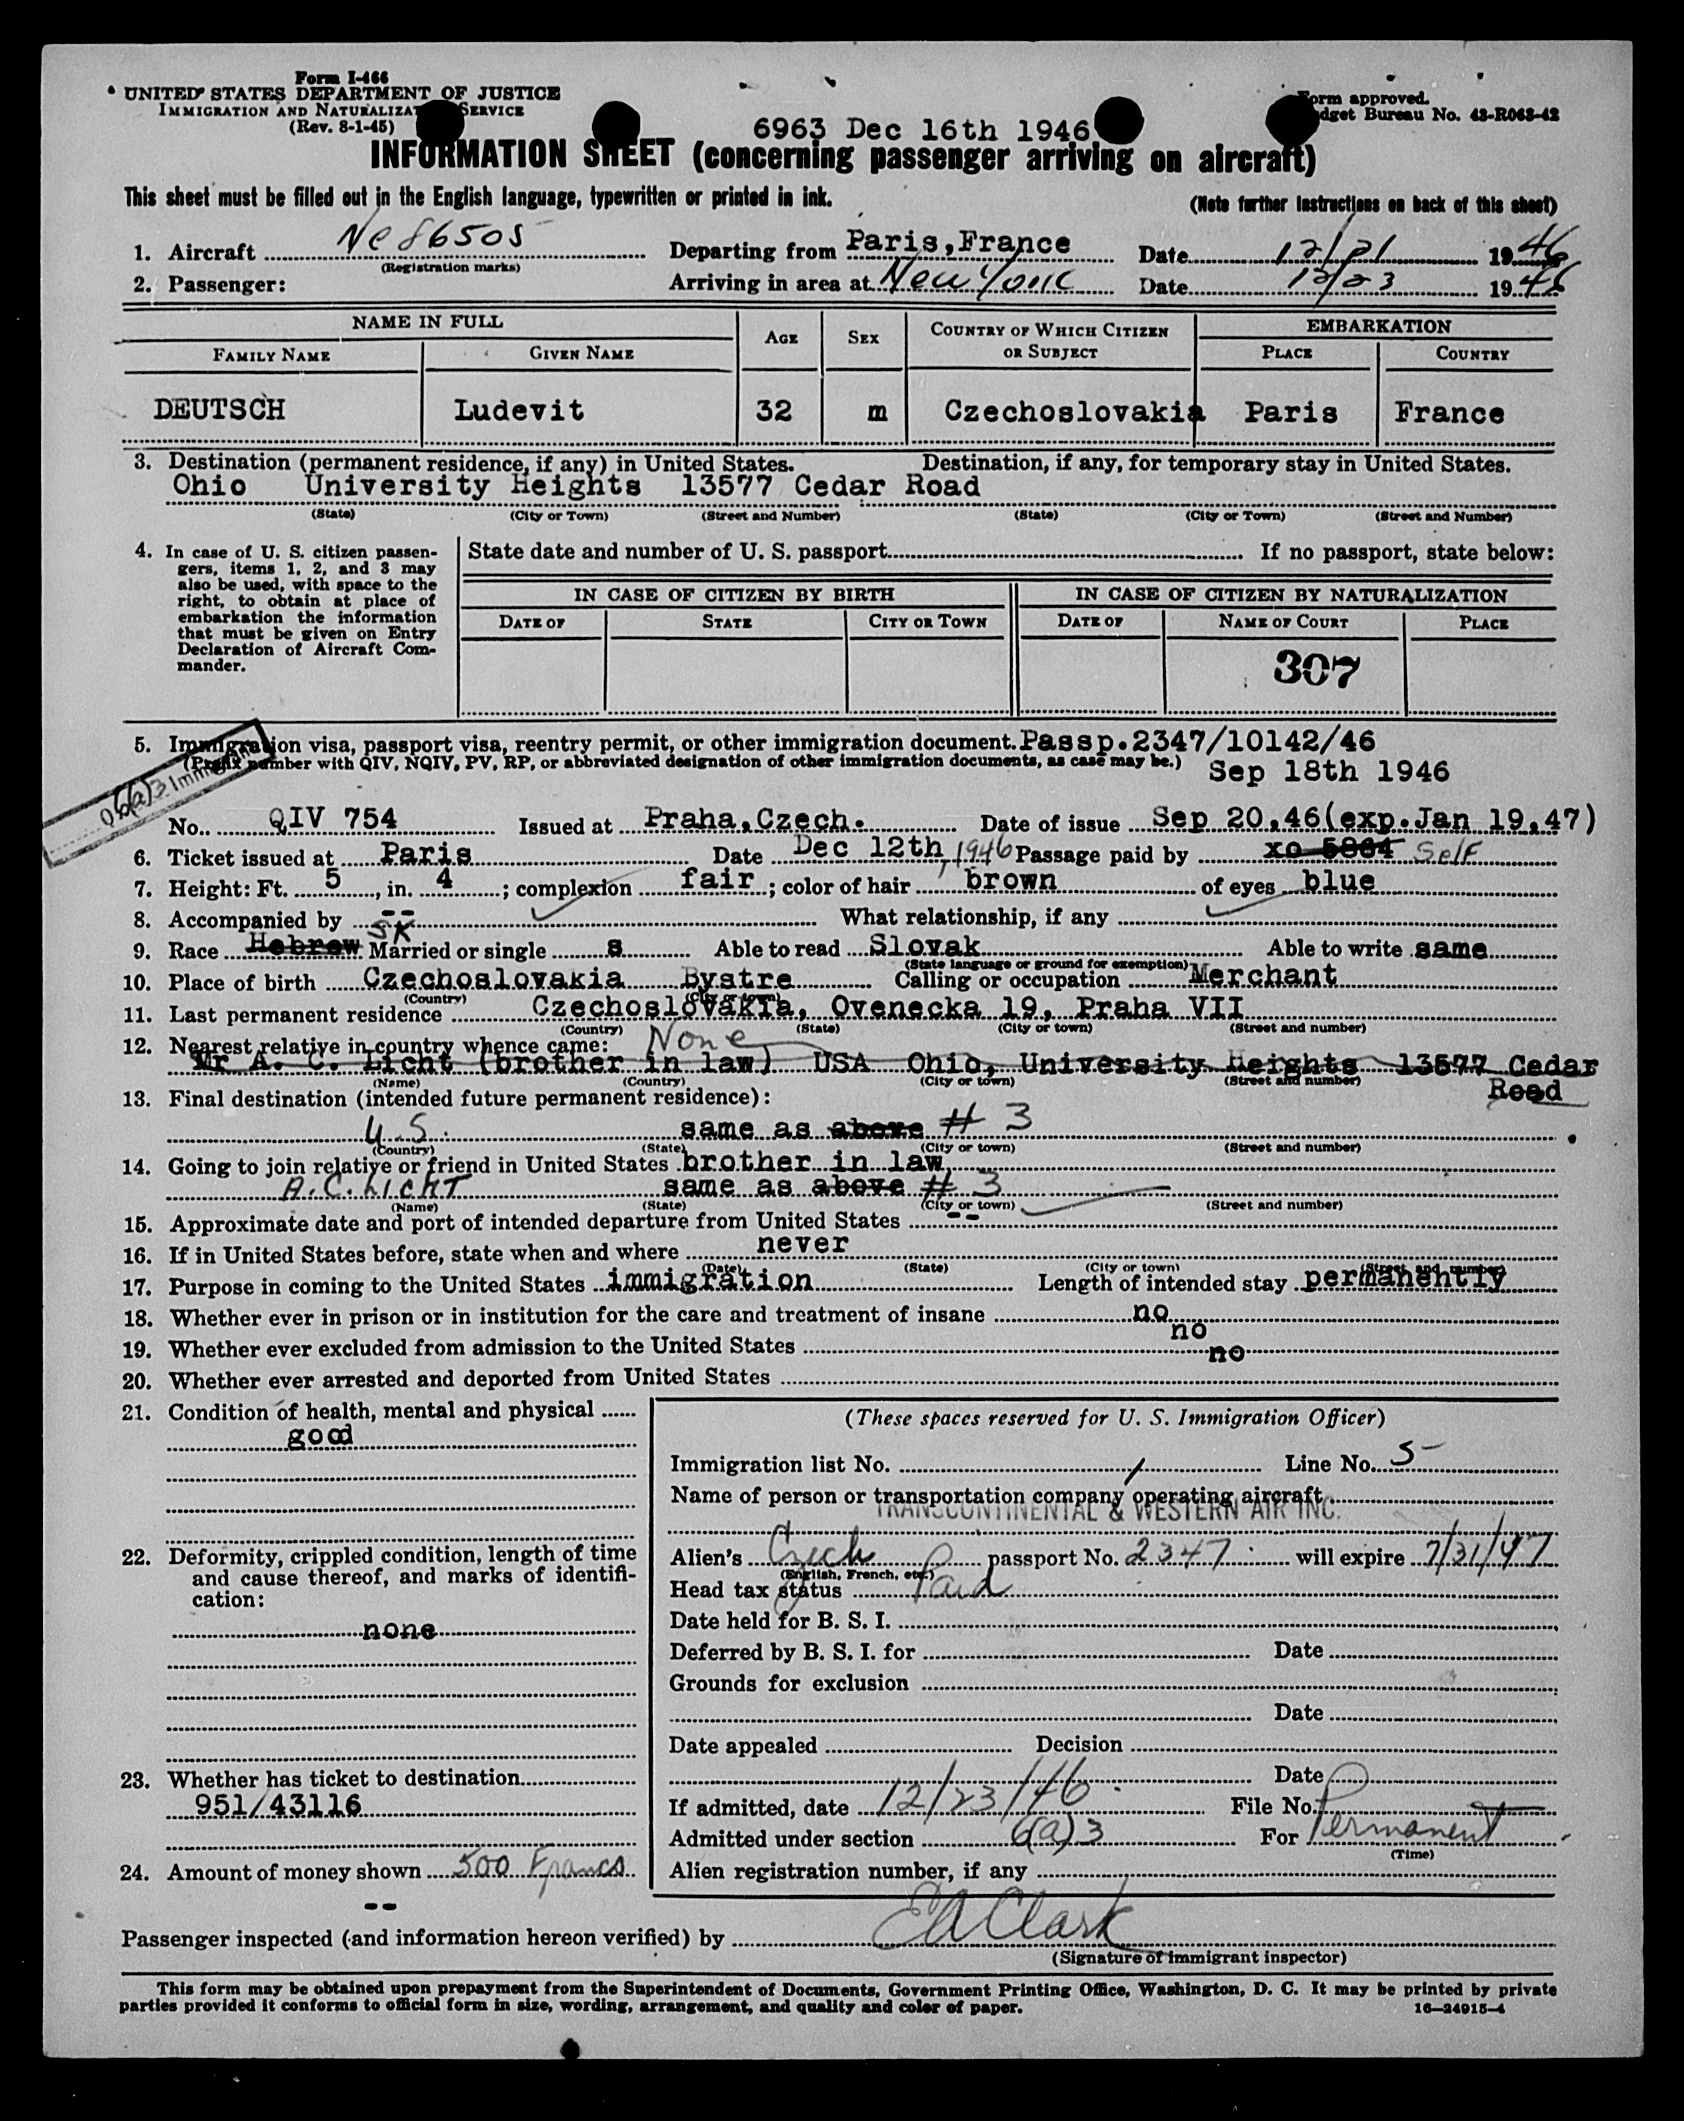 Form I-466
UNITED STATES DEPARTMENT OF JUSTICE
IMMIGRATION AND NATURALIZAT SERVICE
(Rev. 8-1-45)
Form approved.
dget Bureau No. 43-R063-42
6963 Dec 16th 1946
INFORMATION SHEET (concerning passenger arriving on aircraft)
This sheet must be filled out in the English language, typewritten or printed in ink.
(Note further instructions on back of this sheet)
1. Aircraft Nc86505 Departing from Paris,France Date 12/21 1946
(Registration marks)
2. Passenger: Arriving in area at New York Date 12/23 1946
NAME IN FULL AGE SEX COUNTRY OF WHICH CITIZEN OR SUBJECT EMBARKATION
FAMILY NAME GIVEN NAME PLACE COUNTRY
DEUTSCH Ludevit 32 m Czechoslovakia Paris France
3. Destination (permanent residence, if any) in United States. Destination, if any, for temporary stay in United States.
Ohio University Heights 13577 Cedar Road
(State) (City or Town) (Street and Number) (State) (City or Town) (Street and Number)
4. In case of U. S. citizen passen-
gers, items 1, 2, and 3 may
also be used, with space to the
right, to obtain at place of
embarkation the information
that must be given on Entry
Declaration of Aircraft Com-
mander.
State date and number of U. S. passport If no passport, state below:
IN CASE OF CITIZEN BY BIRTH IN CASE OF CITIZEN BY NATURALIZATION
DATE OF STATE CITY OR TOWN DATE OF NAME OF COURT PLACE
307
5. Immigration visa, passport visa, reentry permit, or other immigration document. Passp.2347/10142/46
(Prefix number with QIV, NQIV, PV, RP, or abbreviated designation of other immigration documents, as case may be.) Sep 18th 1946
6(a)3
No. QIV 754 Issued at Praha,Czech. Date of issue Sep 20,46(exp.Jan 19,47)
6. Ticket issued at Paris Date Dec 12th, 1946 Passage paid by xo 5864 Self
7. Height: Ft. 5, in. 4; complexion fair; color of hair brown of eyes blue
8. Accompanied by -- What relationship, if any
9. Race Hebrew SK Married or single s Able to read Slovak Able to write same
(State language or ground for exemption)
10. Place of birth Czechoslovakia Bystre Calling or occupation Merchant
(Country) (City or town)
11. Last permanent residence Czechoslovakia, Ovenecka 19, Praha VII
(Country) (State) (City or town) (Street and number)
12. Nearest relative in country whence came: None
Mr A. C. Licht (brother in law) USA Ohio, University Heights 13577 Cedar
Road
(Name) (Country) (City or town) (Street and number)
13. Final destination (intended future permanent residence):
U.S. same as above # 3
(Country) (State) (City or town) (Street and number)
14. Going to join relative or friend in United States brother in law
A.C. LICHT same as above # 3
(Name) (State) (City or town) (Street and number)
15. Approximate date and port of intended departure from United States --
16. If in United States before, state when and where never
(Date) (State) (City or town) (Street and number)
17. Purpose in coming to the United States immigration Length of intended stay permanently
18. Whether ever in prison or in institution for the care and treatment of insane no
19. Whether ever excluded from admission to the United States no
20. Whether ever arrested and deported from United States no
21. Condition of health, mental and physical
good
22. Deformity, crippled condition, length of time
and cause thereof, and marks of identifi-
cation:
none
23. Whether has ticket to destination
951/43116
24. Amount of money shown 500 Francs
--
(These spaces reserved for U. S. Immigration Officer)
Immigration list No. 1 Line No. 5
Name of person or transportation company operating aircraft
TRANSCONTINENTAL & WESTERN AIR INC.
Alien's Czech passport No. 2347 will expire 7/31/47
(English, French, etc.)
Head tax status Paid
Date held for B. S. I.
Deferred by B. S. I. for Date
Grounds for exclusion
Date
Date appealed Decision
Date
If admitted, date 12/23/46 File No.
Admitted under section 6(a)3 For Permanent
(Time)
Alien registration number, if any
Passenger inspected (and information hereon verified) by EA Clark
(Signature of immigrant inspector)
This form may be obtained upon prepayment from the Superintendent of Documents, Government Printing Office, Washington, D. C. It may be printed by private
parties provided it conforms to official form in size, wording, arrangement, and quality and color of paper.
16—24915-4